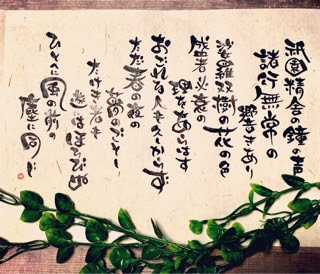 祇園精舎の鐘の声
諸行無常の
響きあり
沙羅双樹の花の色
盛者必衰の
理をあらはす
おごれる人も久しからず
ただ春の夜の
夢のごとし
たけき者も
遂にはほろびぬ
ひとへに風の前の
塵に同じ